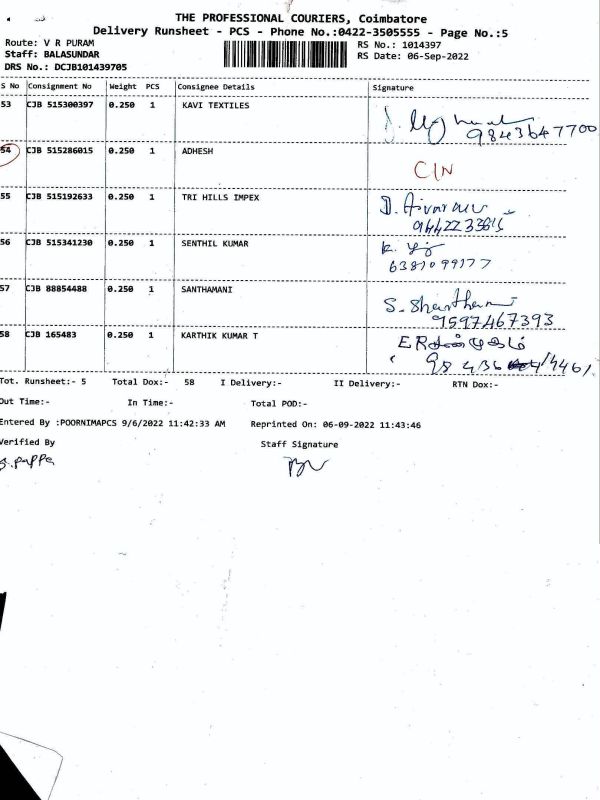 THE PROFESSIONAL COURIERS, Coimbatore
Delivery Runsheet - PCS - Phone No.:0422-3505555 - Page No.:5
Route: V R PURAM RS No.: 1014397
Staff: BALASUNDAR RS Date: 06-Sep-2022
DRS No.: DCJB101439705
S No Consignment No Weight PCS Consignee Details Signature
53 CJB 515300397 0.250 1 KAVI TEXTILES
9843647700
54 CJB 515286015 0.250 1 ADHESH
C/N
55 CJB 515192633 0.250 1 TRI HILLS IMPEX
56 CJB 515341230 0.250 1 SENTHIL KUMAR
57 CJB 88854488 0.250 1 SANTHAMANI
9597467393
58 CJB 165483 0.250 1 KARTHIK KUMAR T
Tot. Runsheet:- 5 Total Dox:- 58 I Delivery:- II Delivery:- RTN Dox:-
Out Time:- In Time:- Total POD:-
Entered By :POORNIMAPCS 9/6/2022 11:42:33 AM Reprinted On: 06-09-2022 11:43:46
Verified By Staff Signature